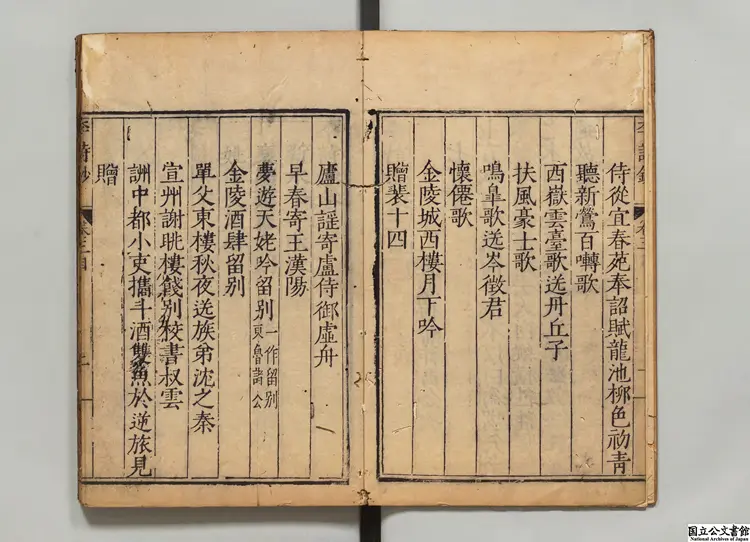 侍從宜春苑奉詔賦龍池柳色初青
聽新鶯百囀歌
西嶽雲臺歌送丹丘子
扶風豪士歌
鳴皐歌送岑徵君
懷僊歌
金陵城西樓月下吟
贈裴十四
廬山謡寄盧侍御虛舟
早春寄王漢陽
夢遊天姥吟留别一作留别東魯諸公
金陵酒肆留别
單父東樓秋夜送族弟沈之秦
宣州謝眺樓餞别校書叔雲
詶中都小吏攜斗酒雙魚於逆旅見
贈
李詩鈔
卷三目
国立公文書館
National Archives of Japan